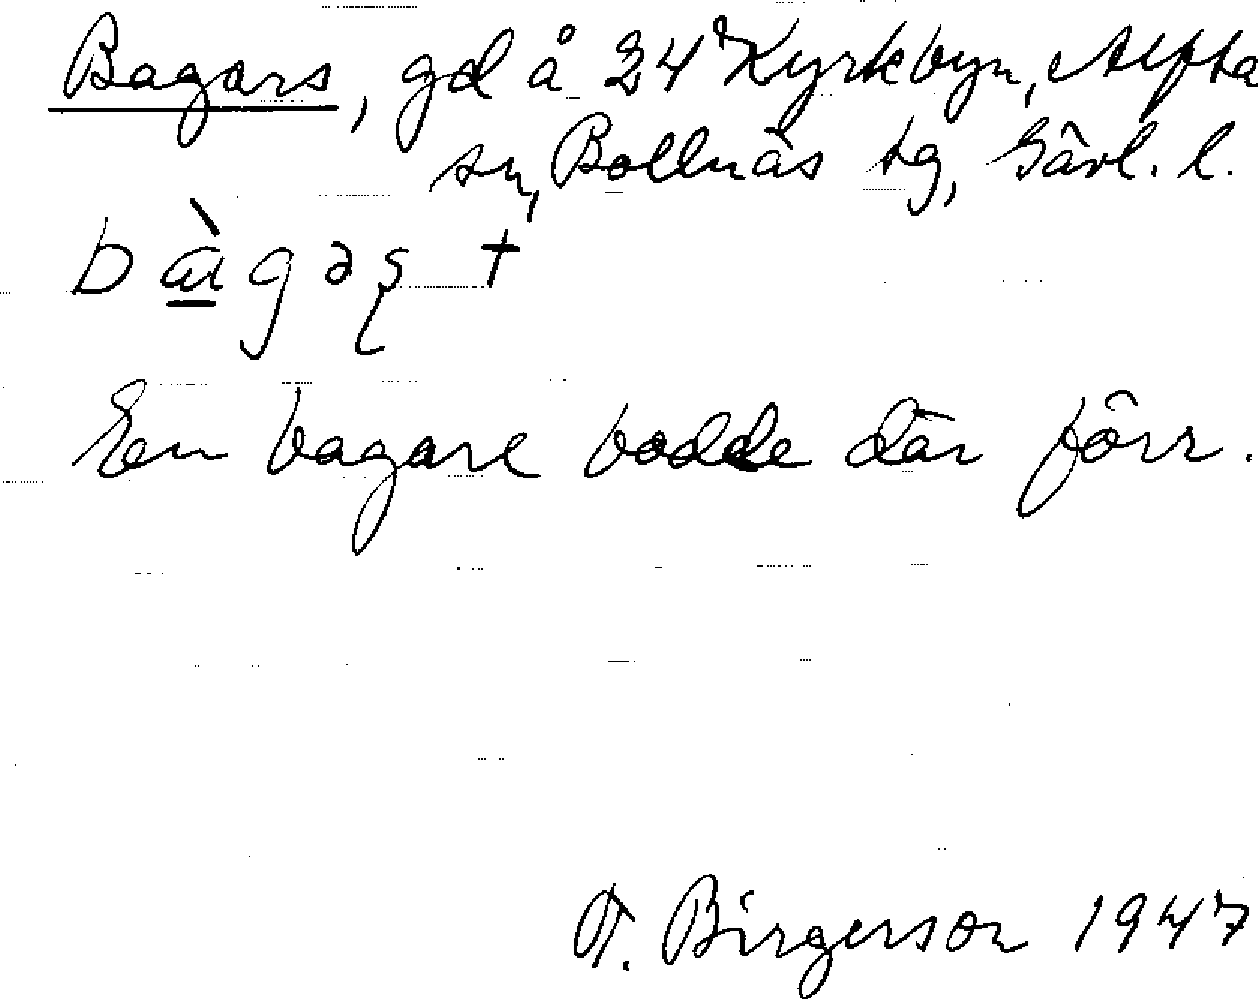 Bagars, gd å 24 Kyrkbyn, Alfta
sn, Bollnäs tg, Gävl. l.
bàgəʂ †
En bagare bodde där förr.
T. Birgerson 1947